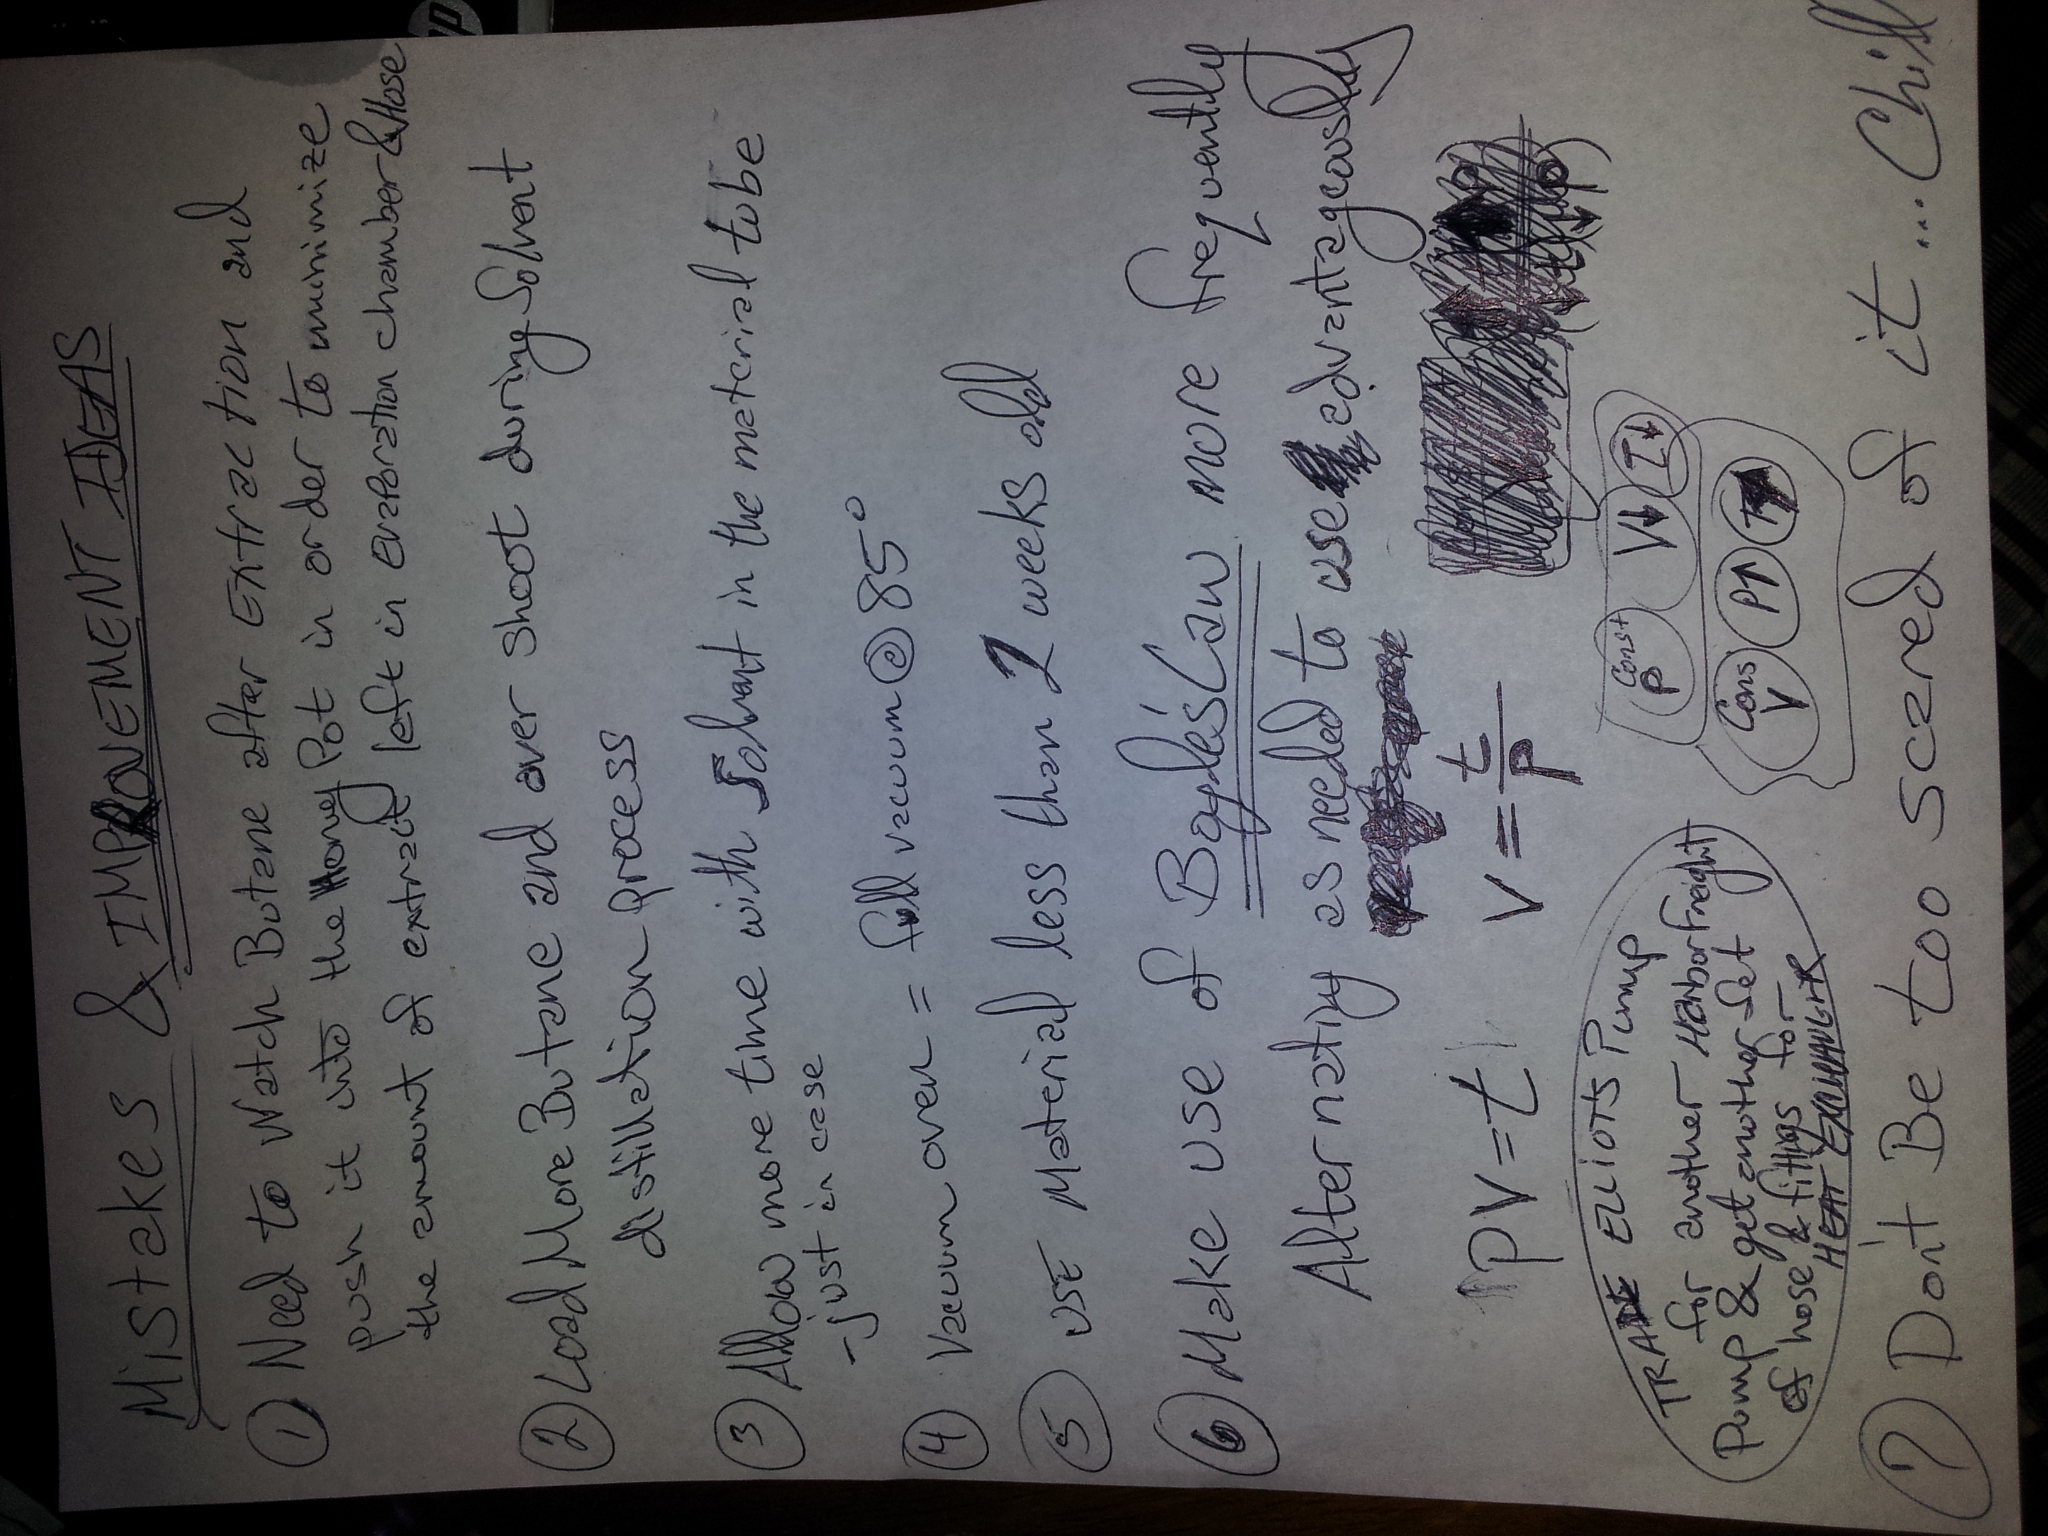 hp
Mistakes & IMPROVEMENT IDEAS
① Need to Watch Butane after Extraction and
push it into the Honey Pot in order to minimize
the amount of extract left in evaporation chamber & Hose
② Load More Butane and over shoot during Solvent
distillation process
③ Allow more time with Solvent in the material to be
-just in case
④ Vacuum oven = full vacuum @ 85°
⑤ USE Material less than 2 weeks old
⑥ Make use of Boyles' Law more frequently
Alternating as needed to use advantageously
PV = t V = t/P
Const P V↓ T↓
Cons V P↑ T↑
TRADE ELIOTS Pump
for another Harbor Freight
Pump & get another Set
of hose & fittings for
HEAT EXCHANGER
⑦ Don't Be too scared of it ... Chill